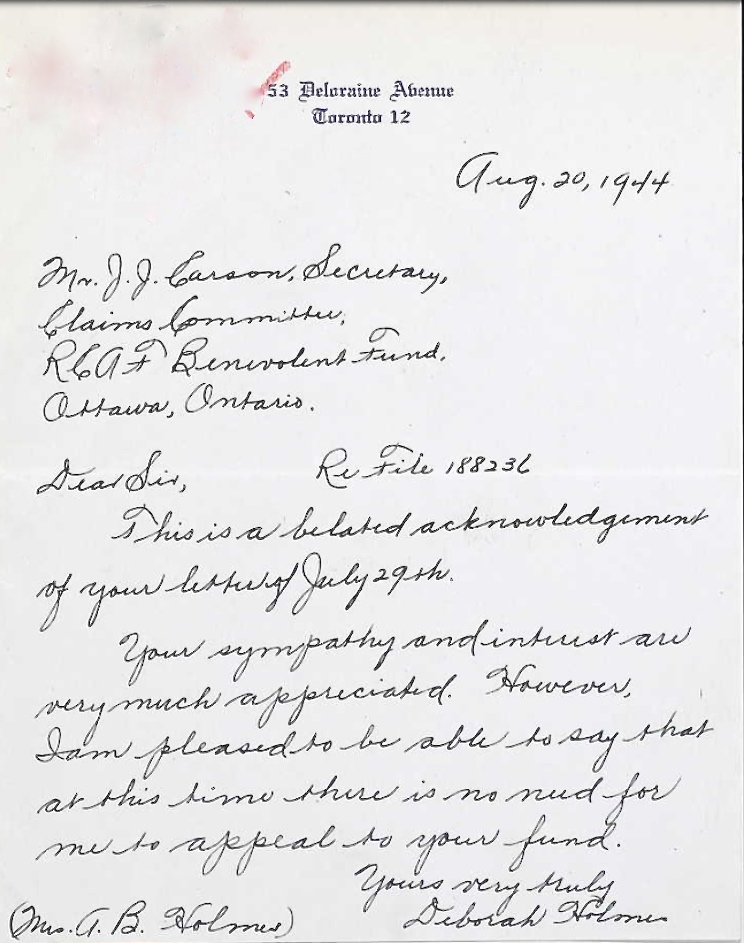 53 Deloraine Avenue
Toronto 12
Aug. 20, 1944
Mr. J. J. Carson, Secretary,
Claims Committee,
RCAF Benevolent Fund.
Ottawa, Ontario.
Dear Sir, Re File 188236
This is a belated acknowledgement
of your letter of July 29th.
Your sympathy and interest are
very much appreciated. However,
I am pleased to be able to say that
at this time there is no need for
me to appeal to your fund.
Yours very truly
(Mrs. A. B. Holmes) Deborah Holmes